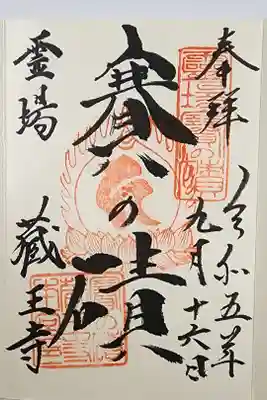 奉拝
令和五年
九月十六日
賽の磧
霊場
蔵王寺